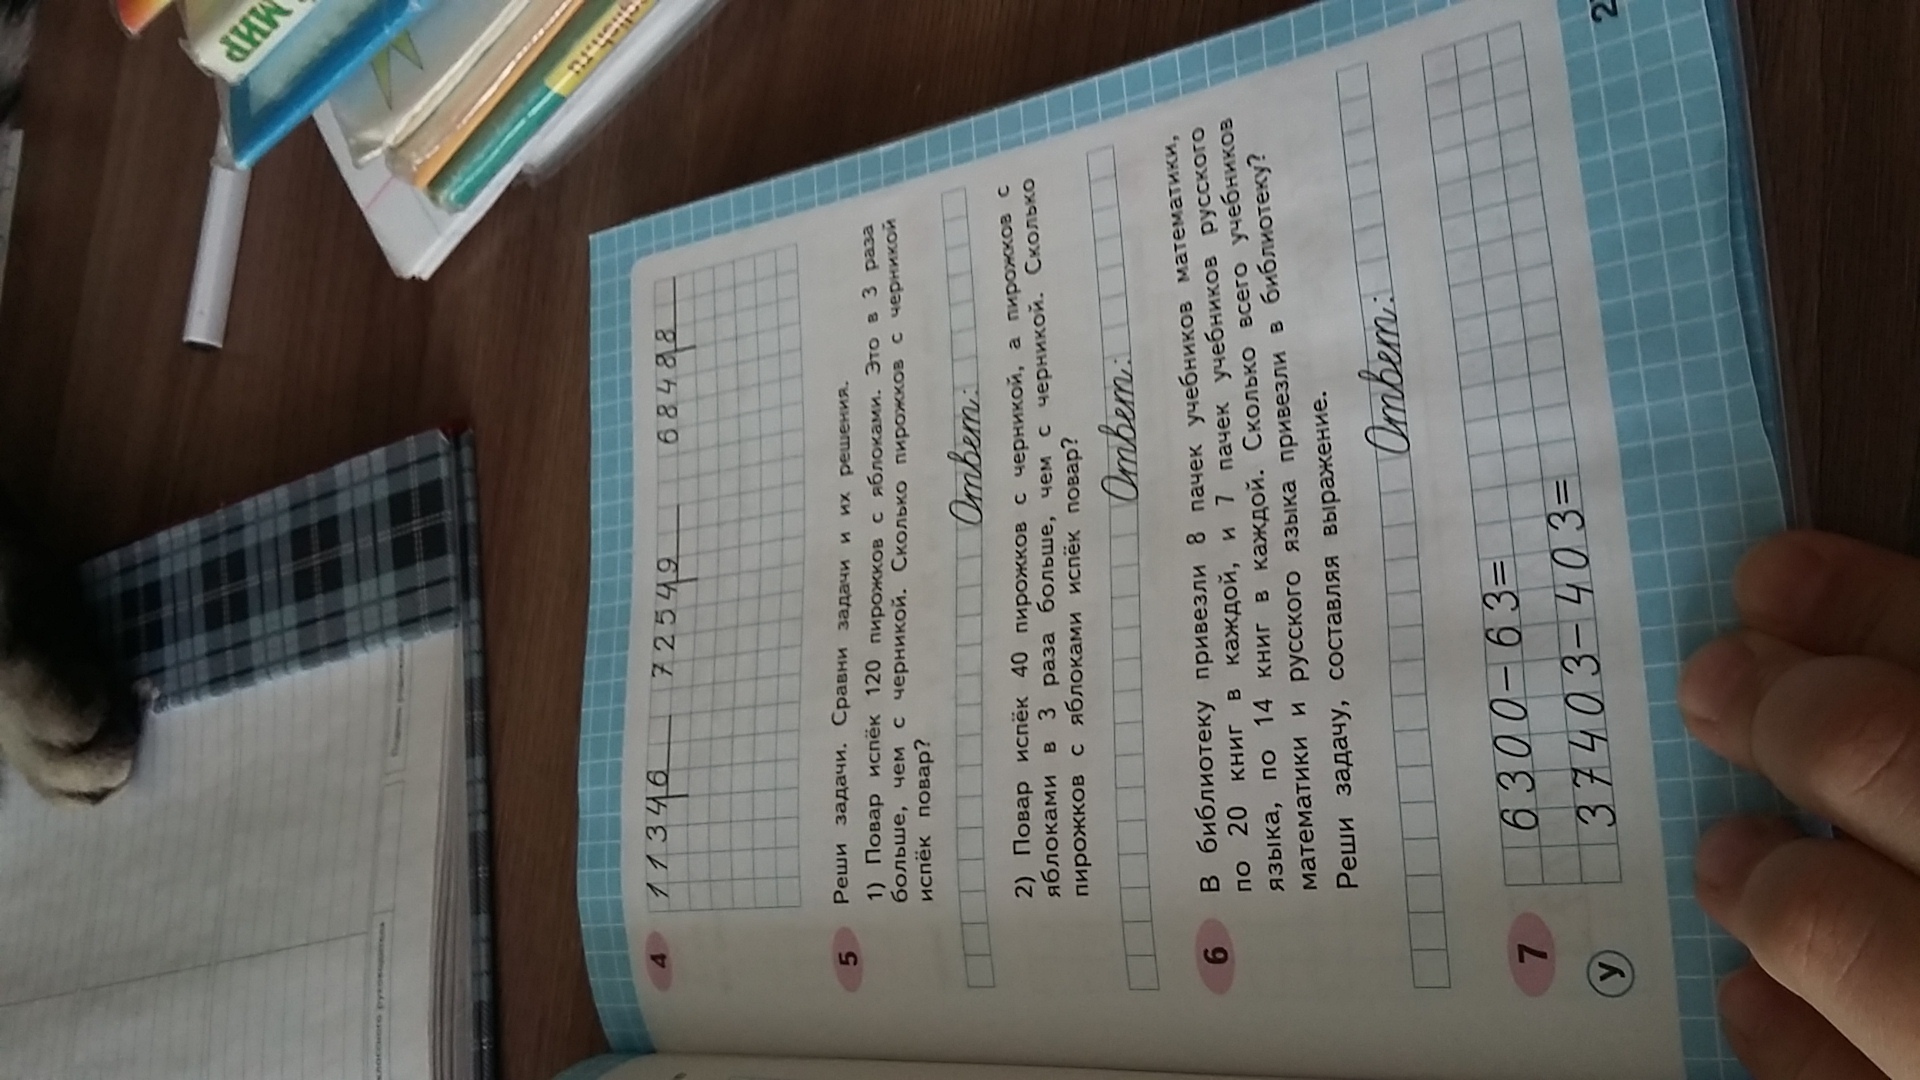 МИР
english.ru
4
11346 72549 68488
5 Реши задачи. Сравни задачи и их решения.
1) Повар испёк 120 пирожков с яблоками. Это в 3 раза
больше, чем с черникой. Сколько пирожков с черникой
испёк повар?
Ответ:
2) Повар испёк 40 пирожков с черникой, а пирожков с
яблоками в 3 раза больше, чем с черникой. Сколько
пирожков с яблоками испёк повар?
Ответ:
6 В библиотеку привезли 8 пачек учебников математики,
по 20 книг в каждой, и 7 пачек учебников русского
языка, по 14 книг в каждой. Сколько всего учебников
математики и русского языка привезли в библиотеку?
Реши задачу, составляя выражение.
Ответ:
7 6300-63=
У 37403-403=